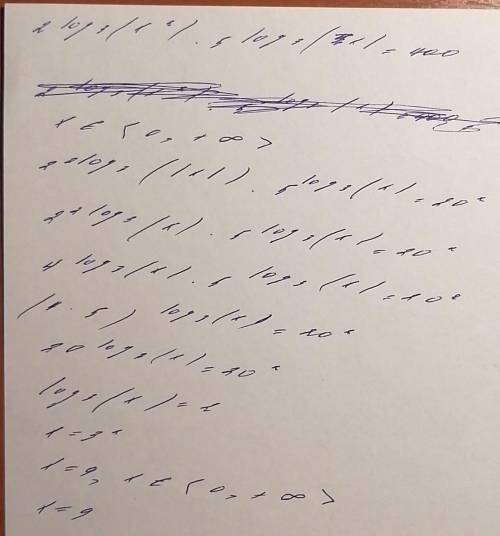 2^log₃(x²) · 5^log₃(x) = 400
x ∈ ⟨0, +∞⟩
2^2log₃(|x|) · 5^log₃(x) = 20²
2^2log₃(x) · 5^log₃(x) = 20²
4^log₃(x) · 5^log₃(x) = 20²
(4·5)^log₃(x) = 20²
20^log₃(x) = 20²
log₃(x) = 2
x = 3²
x = 9, x ∈ ⟨0, +∞⟩
x = 9